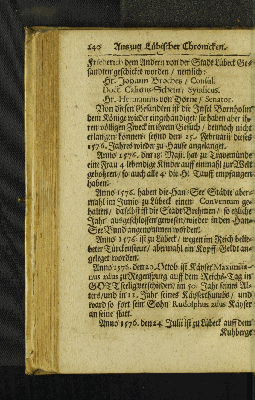 240 Auszug Lübischer Chronicken.
Friederich dem Andern von der Stadt Lübeck Ge-
sandten geschicket worden / nemlich:
Hr. Johann Brockes / Consul.
Doct. Calixtus Schein / Syndicus.
Hr. Hermannus von Dorne / Senator.
Von diesen Gesandten ist die Insel Bornholm
dem Könige wieder eingehändiget / sie haben aber ih-
ren völligen Zweck in ihrem Gesuch / dennoch nicht
erlangen können: seynd den 25. Februarii dieses
1576. Jahres wieder zu Hause angelanget.
Anno 1576. den 18. Maji. hat zu Travemünde
eine Frau 4 lebendige Kinder auff einmahl zur Welt
gebohren / so auch alle 4. die H. Tauff empfangen
haben.
Anno 1576. haben die Han-See Städte aber-
mahl im Junio zu Lübeck einen Conventum ge-
halten / daselbst ist die Stadt Brehmen / so etzliche
Jahr ausgeschlossen gewesen / wieder in den Han-
See Bund angenommen worden.
Anno 1576. ist zu Lübeck / wegen im Reich belie-
beter Türckensteur / abermahl ein Kopff-Geldt an-
geleget worden.
Anno 1576. den 20. Octob. ist Käyser Maximilia-
nus zu Regenspurg auff dem Reichs-Tag in
GOTT seelig verschieden / im 50. Jahr seines Al-
ters / und in 12. Jahr seines Käyserthumbs / und
ward so fort sein Sohn Rudolphus 2dus Käyser
an seine statt.
Anno 1576. den 24. Julii ist zu Lübeck auff dem
Kuhberge